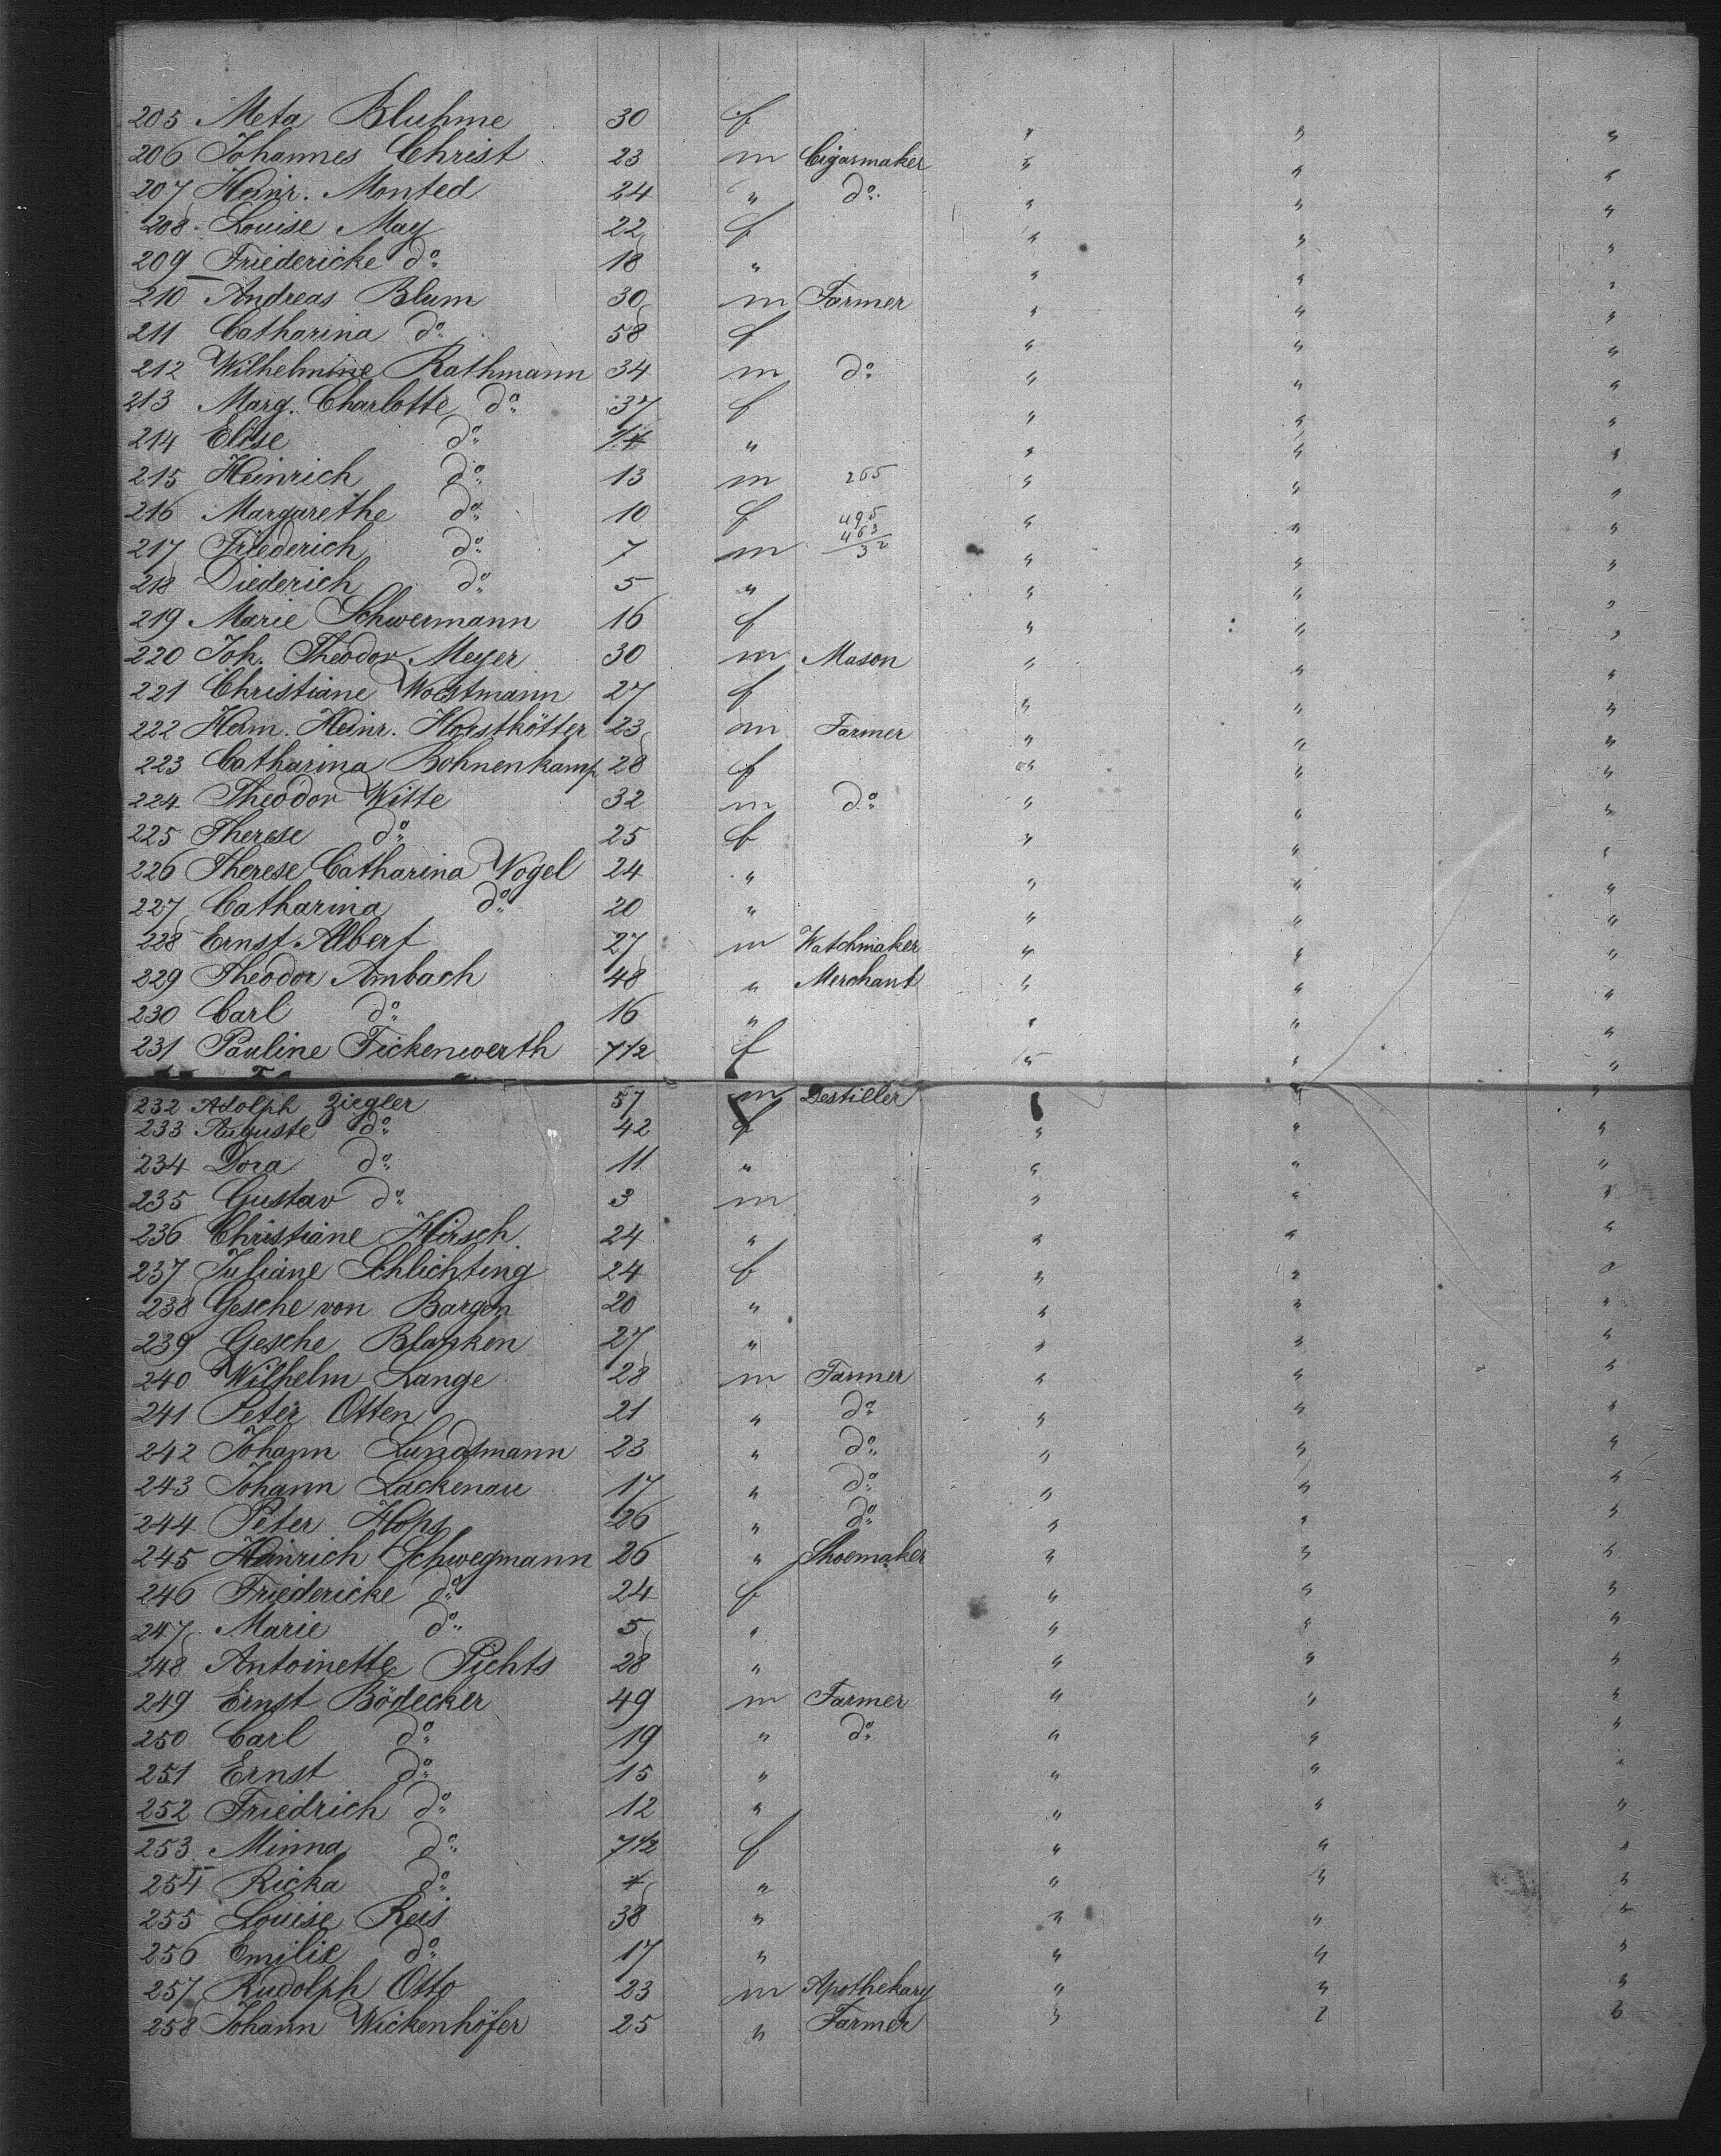 205 Meta Bluhme 30 f " " "
206 Johannes Christ 23 m Cigarmaker " " "
207 Heinr. Monted 24 " do " " "
208 Louise May 22 f " " "
209 Friedericke do 18 " " " "
210 Andreas Blum 30 m Farmer " " "
211 Catharina do 58 f " " "
212 Wilhelmine Rathmann 34 m do " " "
213 Marg. Charlotte do 37 f " " "
214 Elise do " " " "
215 Heinrich do 13 m 265 " " "
216 Margarethe do 10 f 495 " " "
463
217 Friederich do 7 m 32 " " "
218 Diederich do 5 " " " "
219 Marie Schwermann 16 f " " "
220 Joh. Theodor Meyer 30 m Mason " " "
221 Christiane Woestmann 27 f " " "
222 Herm. Heinr. Horstkötter 23 m Farmer " " "
223 Catharina Bohnenkamp 28 f " " "
224 Theodor Witte 32 m do " " "
225 Therese do 25 f " " "
226 Therese Catharina Vogel 24 " " " "
227 Catharina do 20 " " " "
228 Ernst Albert 27 m Watchmaker " " "
229 Theodor Ambach 48 " Merchant " " "
230 Carl do 16 " " " "
231 Pauline Fickenwerth 7 1/2 f " " "
232 Adolph Ziegler 57 m Destiller " " "
233 Auguste do 42 f " " "
234 Dora do 11 " " " "
235 Gustav do 3 m " " "
236 Christiane Hirsch 24 " " " "
237 Juliane Schlichting 24 f " " "
238 Gesche von Bargen 20 " " " "
239 Gesche Blanken 27 " " " "
240 Wilhelm Lange 28 m Farmer " " "
241 Peter Otten 21 " do " " "
242 Johann Lundsmann 23 " do " " "
243 Johann Lackenau 17 " do " " "
244 Peter Hops 26 " do " " "
245 Heinrich Schwegmann 26 " Shoemaker " " "
246 Friedericke do 24 f " " "
247 Marie do 5 " " " "
248 Antoinette Pichts 28 " " " "
249 Ernst Bödecker 49 m Farmer " " "
250 Carl do 19 " do " " "
251 Ernst do 15 " " " "
252 Friedrich do 12 " " " "
253 Minna do 7 1/2 f " " "
254 Ricka do " " " "
255 Louise Reis 38 " " " "
256 Emilie do 17 " " " "
257 Rudolph Otto 23 m Apothekary " " "
258 Johann Wickenhöfer 25 " Farmer " " "